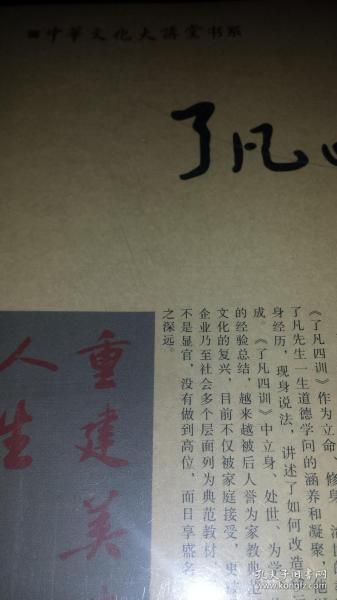 中華文化大講堂书系
了凡
《了凡四训》作为立命、修身、治世
了凡先生一生道德学问的涵养和凝聚，
身经历，现身说法，讲述了如何改造
成。《了凡四训》中立身、处世、为学
的经验总结，越来越被后人誉为家教典
文化的复兴，目前不仅被家庭接受，更
企业乃至社会多个层面列为典范教材，
不是显官，没有做到高位，而日享盛名
之深远。
重建美
人生
孔夫子旧书网